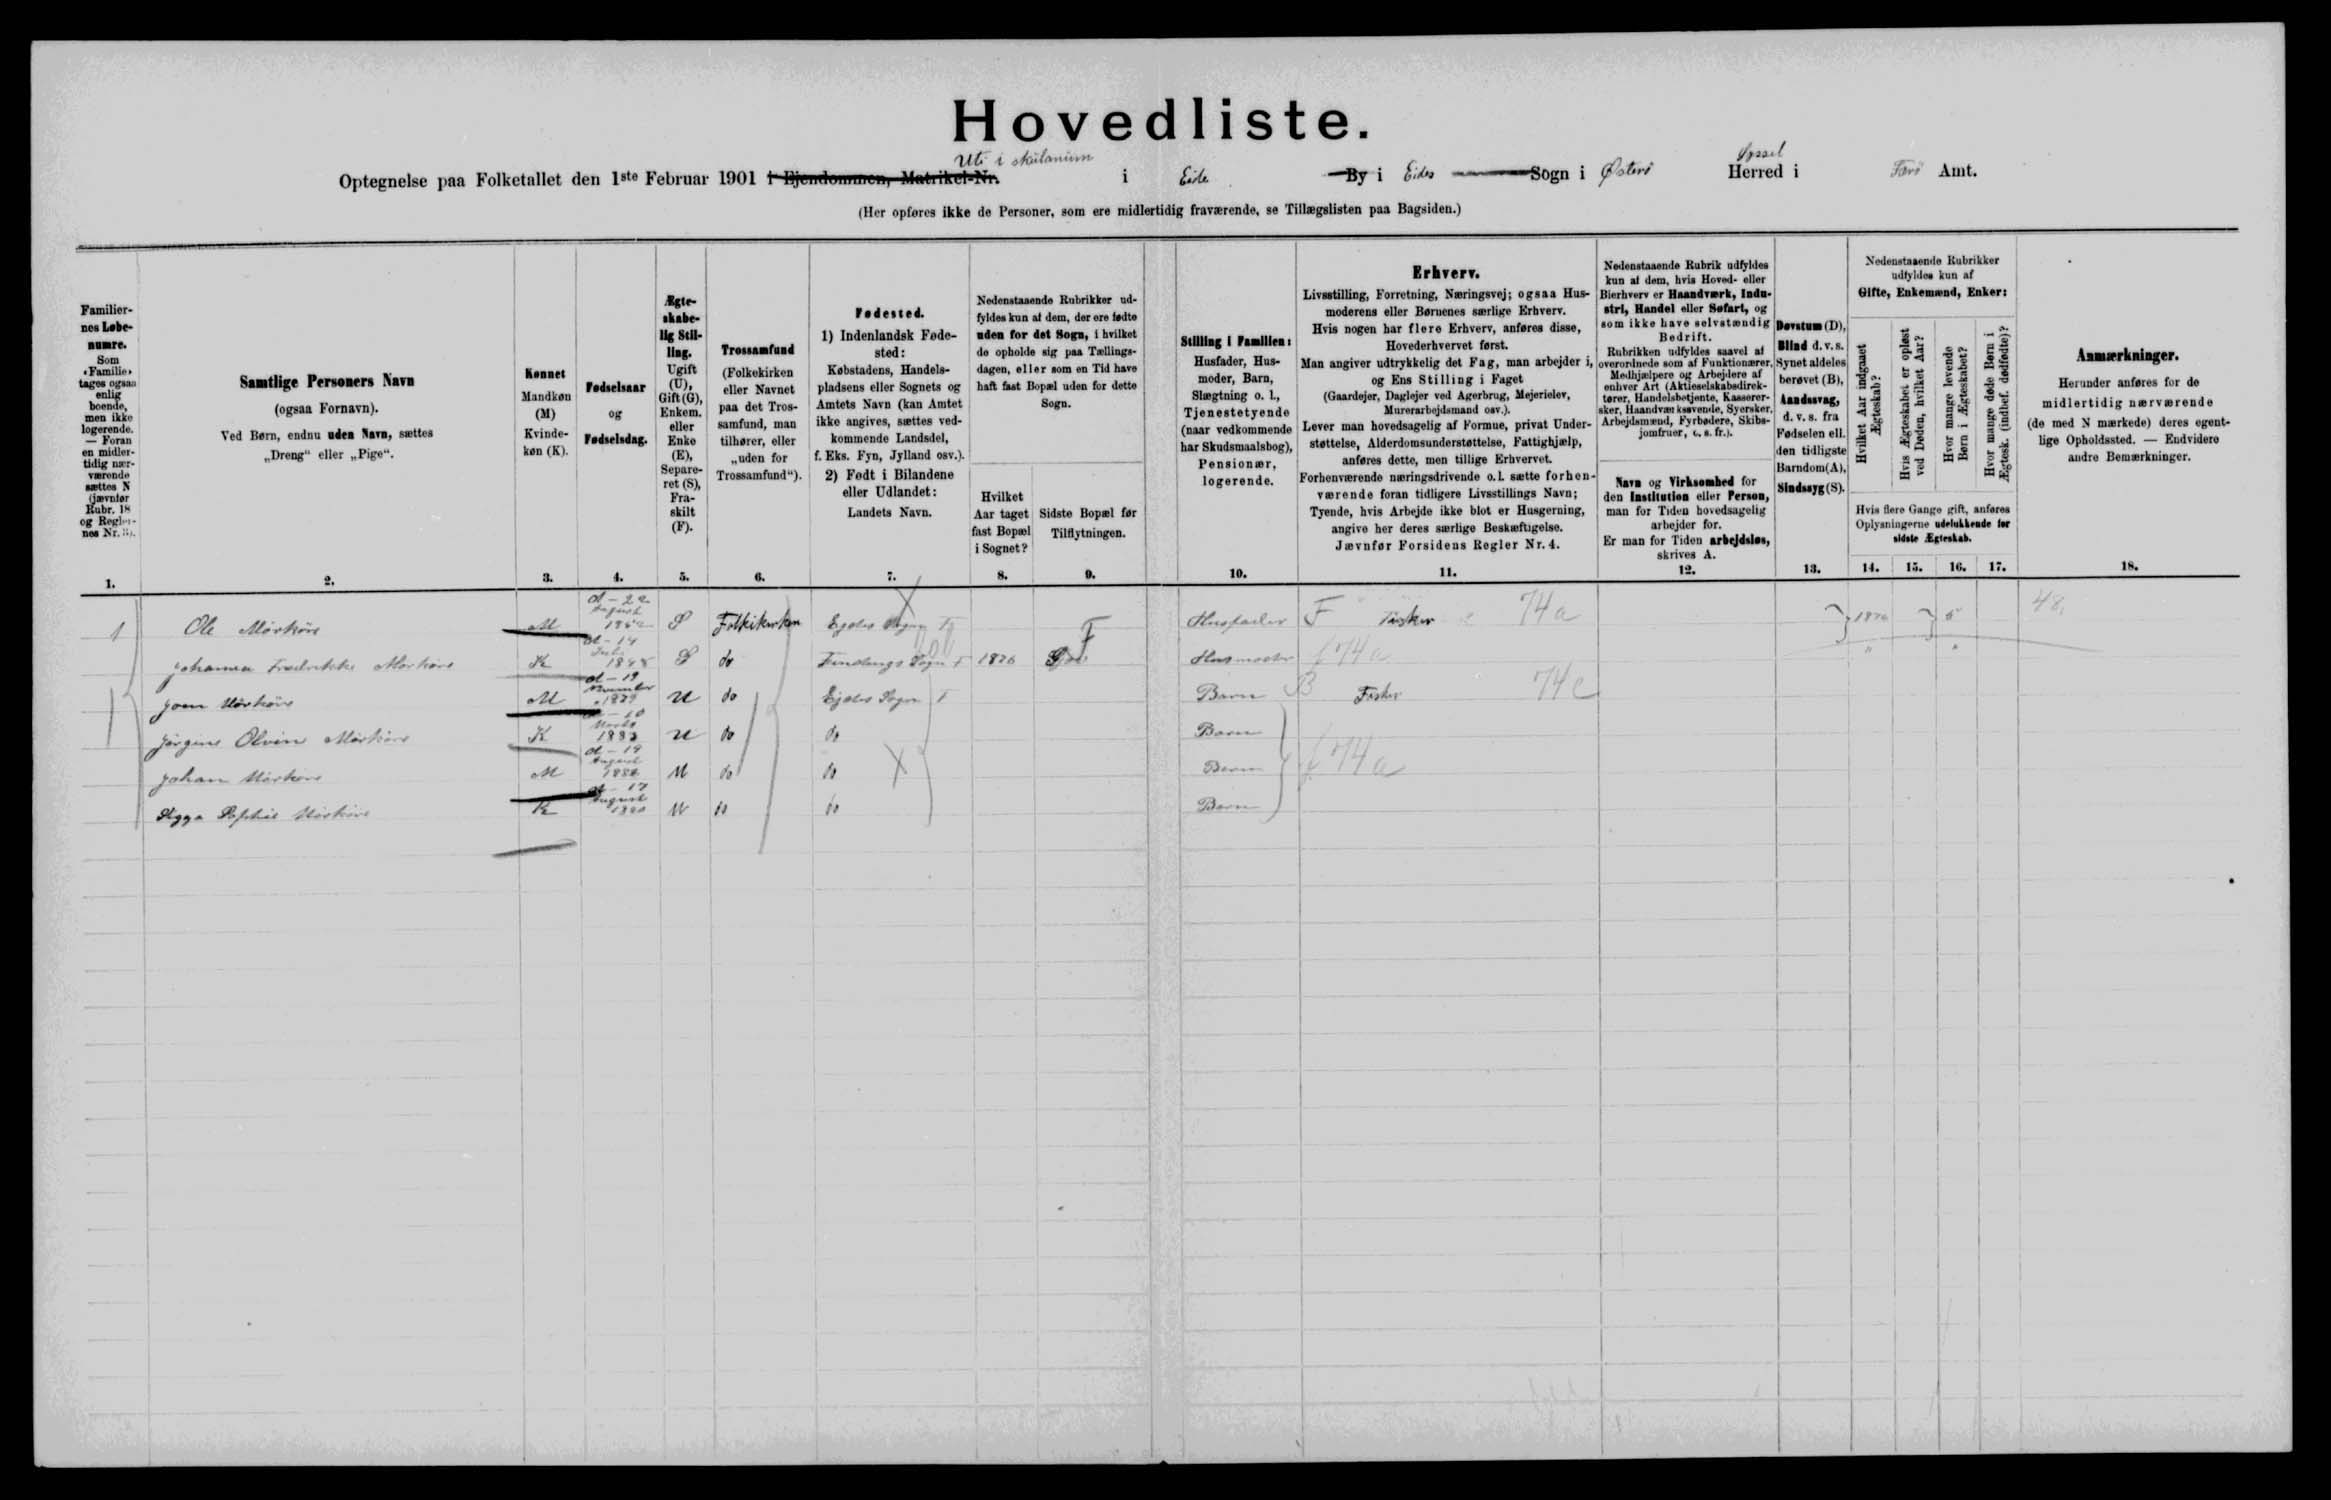 Hovedliste.
Optegnelse paa Folketallet den 1ste Februar 1901 i Ejendommen, Matrikel-Nr. Uti i skúlanum i Eide By i Eides Sogn i Østerø Herred Syssel i Færø Amt.
(Her opføres ikke de Personer, som ere midlertidig fraværende, se Tillægslisten paa Bagsiden.)
Familier-
nes Løbe-
numre.
Som
«Familie»
tages ogsaa
enlig
boende,
men ikke
logerende.
— Foran
en midler-
tidig nær-
værende
sættes N
(jævnfør
Rubr. 18
og Regler-
nes Nr. 3).
1.
Samtlige Personers Navn
(ogsaa Fornavn).
Ved Børn, endnu uden Navn, sættes
„Dreng“ eller „Pige“.
2.
Kønnet
Mandkøn
(M)
Kvinde-
køn (K).
3.
Fødselsaar
og
Fødselsdag.
4.
Ægte-
skabe-
lig Stil-
ling.
Ugift
(U),
Gift (G),
Enkem.
eller
Enke
(E),
Separe-
ret (S),
Fra-
skilt
(F).
5.
Trossamfund
(Folkekirken
eller Navnet
paa det Tros-
samfund, man
tilhører, eller
„uden for
Trossamfund“).
6.
Fødested.
1) Indenlandsk Føde-
sted:
Købstadens, Handels-
pladsens eller Sognets og
Amtets Navn (kan Amtet
ikke angives, sættes ved-
kommende Landsdel,
f. Eks. Fyn, Jylland osv.).
2) Født i Bilandene
eller Udlandet:
Landets Navn.
7.
Nedenstaaende Rubrikker ud-
fyldes kun af dem, der ere fødte
uden for det Sogn, i hvilket
de opholde sig paa Tællings-
dagen, eller som en Tid have
haft fast Bopæl uden for dette
Sogn.
Hvilket
Aar taget
fast Bopæl
i Sognet?
8.
Sidste Bopæl før
Tilflytningen.
9.
Stilling i Familien:
Husfader, Hus-
moder, Barn,
Slægtning o. l.,
Tjenestetyende
(naar vedkommende
har Skudsmaalsbog),
Pensionær,
logerende.
10.
Erhverv.
Livsstilling, Forretning, Næringsvej; ogsaa Hus-
moderens eller Børnenes særlige Erhverv.
Hvis nogen har flere Erhverv, anføres disse,
Hovederhvervet først.
Man angiver udtrykkelig det Fag, man arbejder i,
og Ens Stilling i Faget
(Gaardejer, Daglejer ved Agerbrug, Mejerielev,
Murerarbejdsmand osv.).
Lever man hovedsagelig af Formue, privat Under-
støttelse, Alderdomsunderstøttelse, Fattighjælp,
anføres dette, men tillige Erhvervet.
Forhenværende næringsdrivende o. l. sætte forhen-
værende foran tidligere Livsstillings Navn;
Tyende, hvis Arbejde ikke blot er Husgerning,
angive her deres særlige Beskæftigelse.
Jævnfør Forsidens Regler Nr. 4.
11.
Nedenstaaende Rubrik udfyldes
kun af dem, hvis Hoved- eller
Bierhverv er Haandværk, Indu-
stri, Handel eller Søfart, og
som ikke have selvstændig
Bedrift.
Rubrikken udfyldes saavel af
overordnede som af Funktionærer,
Medhjælpere og Arbejdere af
enhver Art (Aktieselskabsdirek-
tører, Handelsbetjente, Kasserer-
sker, Haandværkssvende, Syersker,
Arbejdsmænd, Fyrbødere, Skibs-
jomfruer, o. s. fr.).
Navn og Virksomhed for
den Institution eller Person,
man for Tiden hovedsagelig
arbejder for.
Er man for Tiden arbejdsløs,
skrives A.
12.
Døvstum (D),
Blind d. v. s.
Synet aldeles
berøvet (B),
Aandssvag,
d. v. s. fra
Fødselen ell.
den tidligste
Barndom (A),
Sindssyg (S).
13.
Nedenstaaende Rubrikker
udfyldes kun af
Gifte, Enkemænd, Enker:
Hvilket Aar indgaaet
Ægteskab?
Hvis Ægteskabet er opløst
ved Døden, hvilket Aar?
Hvor mange levende
Børn i Ægteskabet?
Hvor mange døde Børn i
Ægtesk. (indbef. dødfødte)?
Hvis flere Gange gift, anføres
Oplysningerne udelukkende for
sidste Ægteskab.
14. 15. 16. 17.
Anmærkninger.
Herunder anføres for de
midlertidig nærværende
(de med N mærkede) deres egent-
lige Opholdssted. — Endvidere
andre Bemærkninger.
18.
1 Ole Mörköre M August G Folkikirken Egdes Sogn F Husfader F Fisker 74 a 5 48
Johanna Fredrikke Mörköre K d - 14 G do Sogn F 1876 F Husmoder f 74 a
Joen Mörköre M d - 19 November 1879 U do Egdes Sogn F Barn B Fisker 74 c
Mörköre K Marts U do do Barn
Johan Mörköre M d - 19 August U do do Barn f 74 a
Sophie Mörköre K August U do do Barn